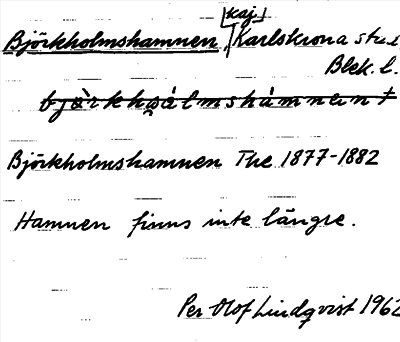 [kaj]
Björkholmshamnen Karlskrona stad
Blek. l.
Björkholmshamnen The 1877-1882
Hamnen finns inte längre.
Per Olof Lindqvist 1962